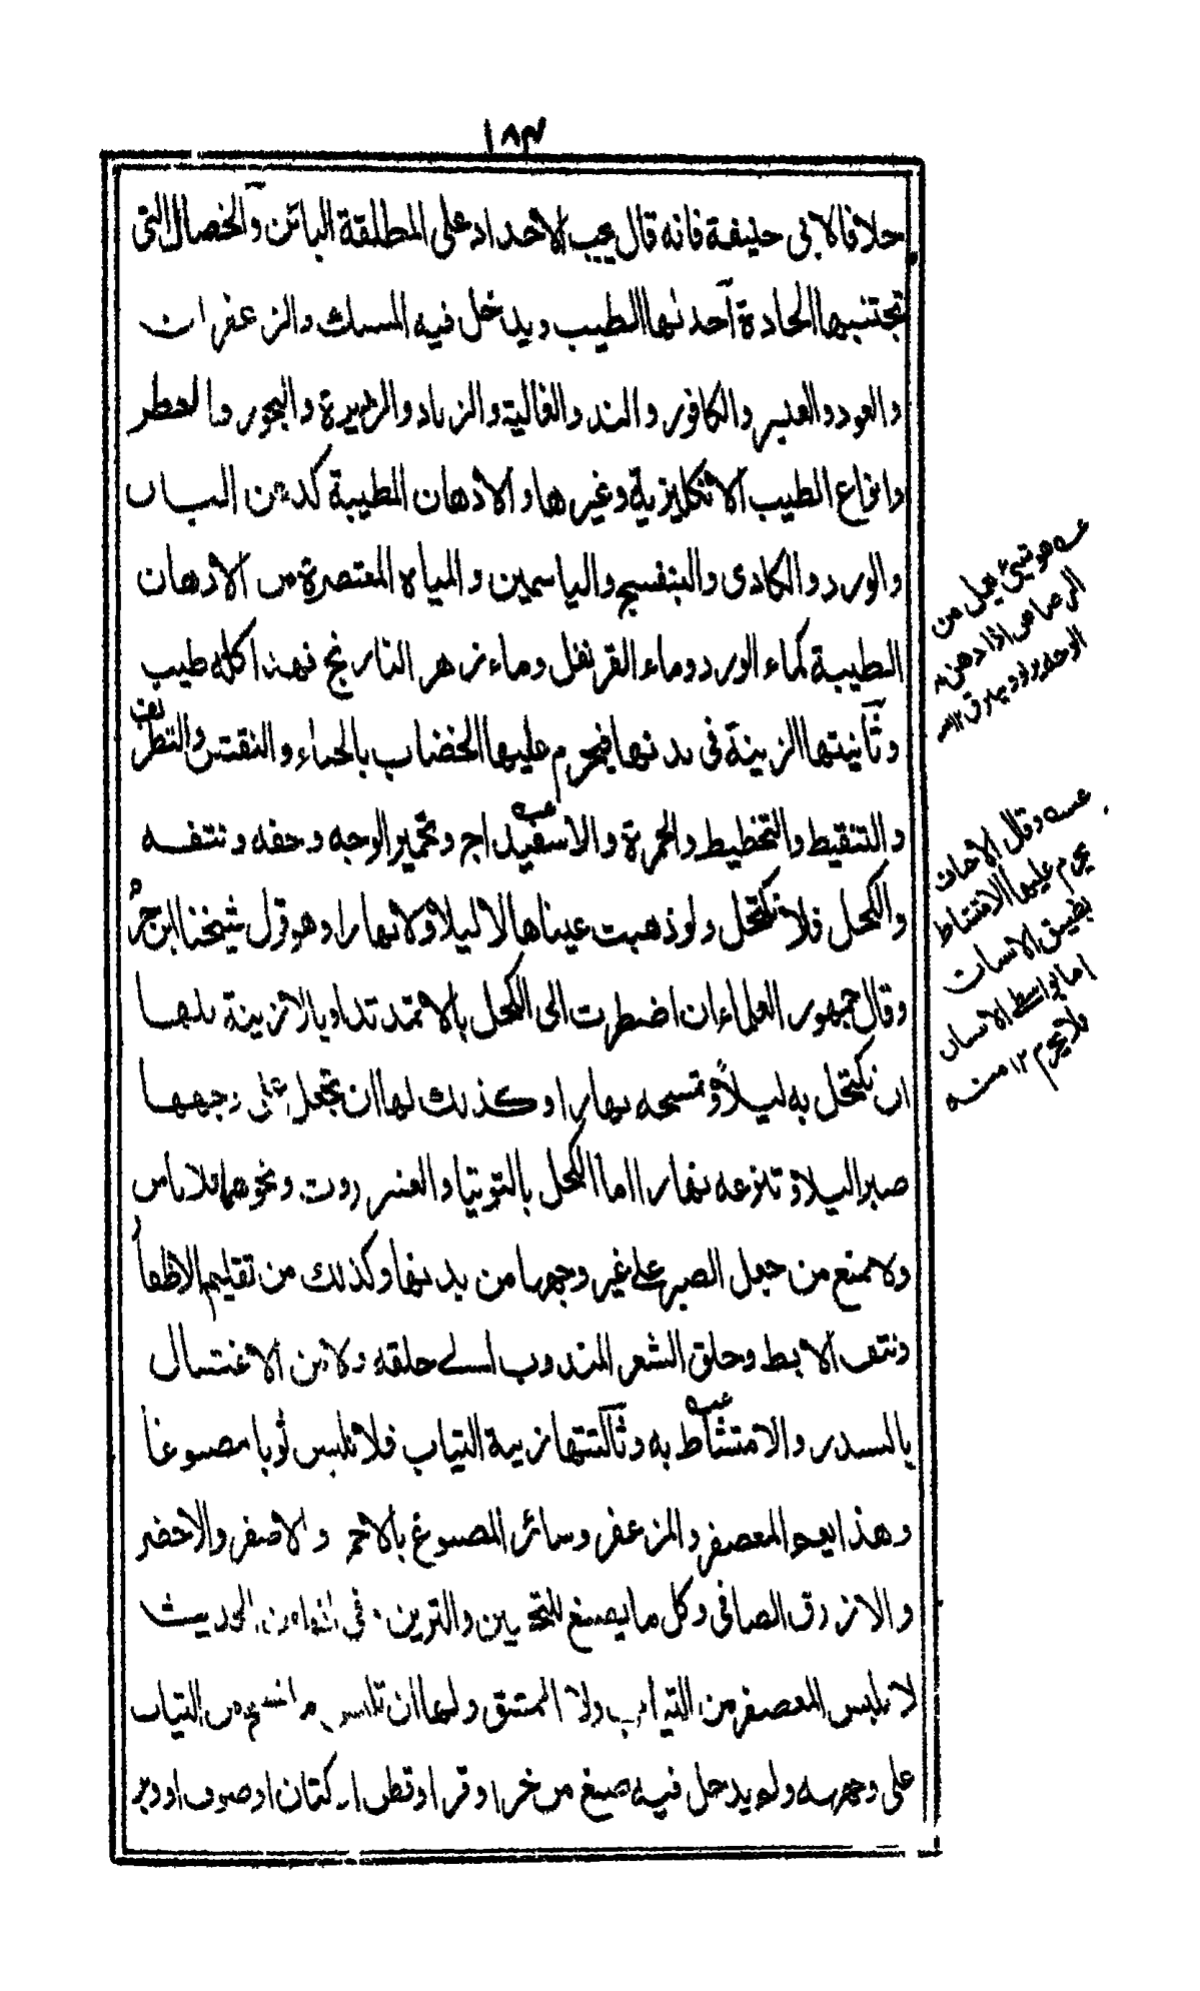 ١٨٣
خلافا لابي حنيفة فانه قال يجب الاحداد على المطلقة البائن والخصال التي
تجتنبها الحادة آحدنها الطيب ويدخل فيه المسك والزعفران
والعود والعنبر والكافور والند والغالية والزباد والذريرة والبخور والعطر
وانواع الطيب الانكليزية وغيرها والادهان المطيبة كدهن البان
والورد والكادى والبنفسج والياسمين والمياه المعتصرة من الادهان
الطيبة كماء الورد وماء القرنفل وماء زهر النارنج فهذا كله طيب
وثآنيتها الزينة في بدنها فيحرم عليها الخضاب بالحناء والنقش والتطريف
والتنقيط والتخطيط والحمرة والاسفيداج وتحمير الوجه وحفه ونتفه
والكحل فلا تكتحل ولو ذهبت عيناها لا ليلا ولا نهارا وهو قول شيخنا ابن حجر
وقال جمهور العلماء ان اضطرت الى الكحل بالاثمد تداويا لا زينة فلها
ان تكتحل به ليلاً وتمسحه نهارا وكذلك لها ان تجعل على وجهها
صبرا ليلا وتنزعه نهارا اما الكحل بالتوتيا والعنزروت ونحوهما فلا بأس
ولا تمنع من جعل الصبر على غير وجهها من بدنها وكذلك من تقليم الاظفا
ونتف الابط وحلق الشعر المندوب الى حلقه ولا من الاغتسال
بالسدر والامتشاط به وثآلثتها زينة الثياب فلا تلبس ثوبا مصبوغا
وهذا يعم المعصفر والمزعفر وسائر المصبوغ بالاحمر والاصفر والاخضر
والازرق الصافي وكل ما يصبغ للتحسين والتزين ففي الحديث
لا تلبس المعصفر من الثياب ولا الممشق ولها ان تلبس ما نسج من الثياب
على وجهه ولم يدخل فيه صبغ من خز او قز او قطن او كتان او صوف او وبر
عـه هو شئ يعمل من
الرصاص اذا دهن به
الوجه يربو ويبرق ١٢ منه
عـه وقال الاحناف
يحرم عليها الامتشاط
بضيق الاسنان
اما بواسع الاسنان
فلا يحرم ١٢ منـه